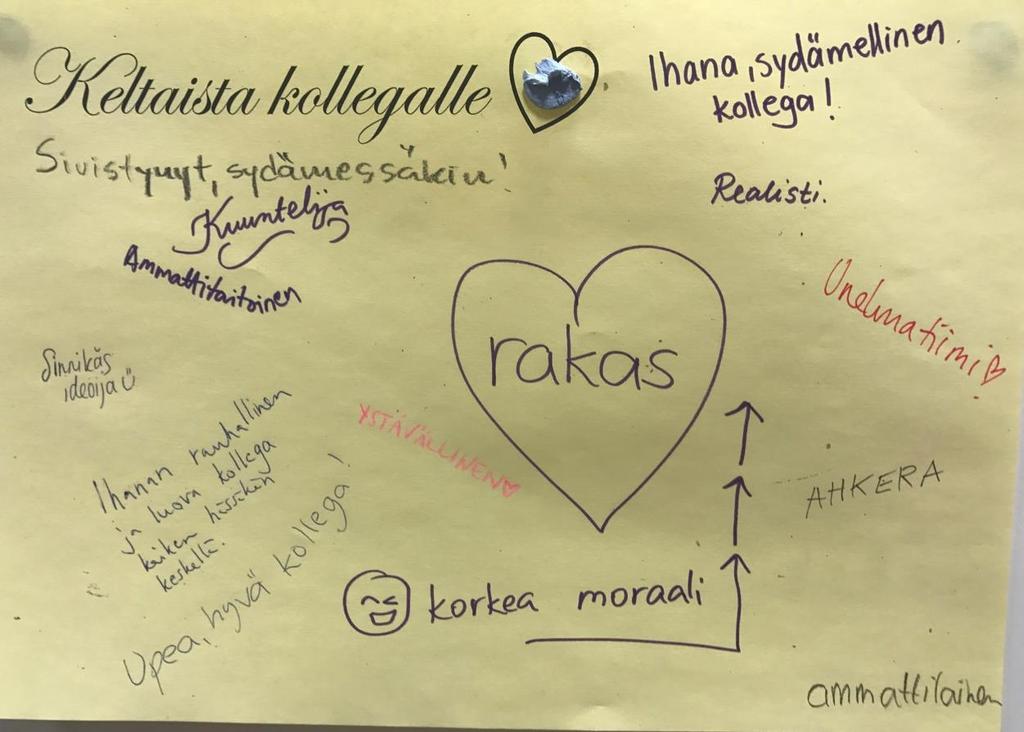 Keltaista kollegalle
Ihana, sydämellinen
kollega!
Sivistynyt, sydämessäkin!
Realisti.
Kuuntelija
Ammattitaitoinen
Unelmatiimi
rakas
Sinnikäs
ideoija
YSTÄVÄLLINEN
Ihanan rauhallinen
ja luova kollega
kaiken hässäkän
keskellä.
AHKERA
Upea, hyvä kollega!
korkea moraali
ammattilainen